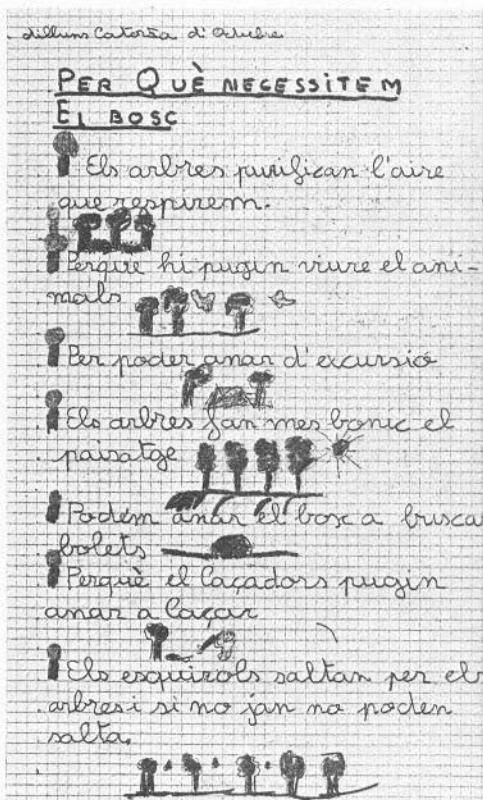 dilluns Catorza d'Octubre
PER QUÈ NECESSITEM
El BOSC
Els arbres purifican l'aire
que respirem.
Perquè hi pugin viure el ani-
mals
Per poder anar d'excursió
Els arbres fan mes bonic el
paisatge
Podem anar el bosc a busca
bolets
Perquè el Caçadors pugin
anar a Caçar
Els esquirols saltan per els
arbres i si no jan no poden
salta.